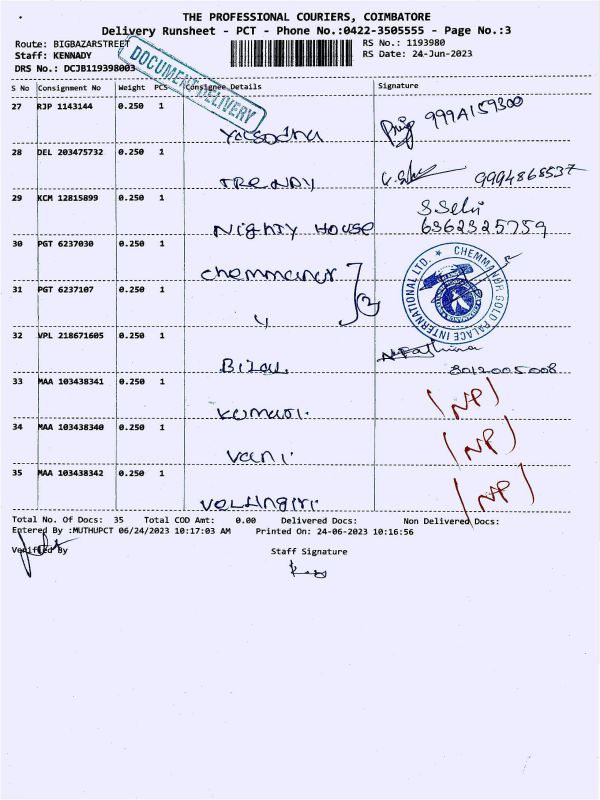 THE PROFESSIONAL COURIERS, COIMBATORE
Delivery Runsheet - PCT - Phone No.:0422-3505555 - Page No.:3
Route: BIGBAZARSTREET RS No.: 1193980
Staff: KENNADY RS Date: 24-Jun-2023
DRS No.: DCJB119398003
DOCUMENT DELIVERY
S No Consignment No Weight PCS Consignee Details Signature
27 RJP 1143144 0.250 1
Yasodha
28 DEL 203475732 0.250 1
TRENDY 9994868537
29 KCM 12815899 0.250 1
S Selvi
Nighty House 6362325759
30 PGT 6237030 0.250 1
Chemmanur
CHEMMANUR GOLD PALACE INTERNATIONAL LTD.
31 PGT 6237107 0.250 1
"
32 VPL 218671605 0.250 1
N.Fathima
Bilal 8012005008
33 MAA 103438341 0.250 1
Kumari. (NP)
34 MAA 103438340 0.250 1
Vani. (NP)
35 MAA 103438342 0.250 1
Vellingiri. (NP)
Total No. Of Docs: 35 Total COD Amt: 0.00 Delivered Docs: Non Delivered Docs:
Entered By :MUTHUPCT 06/24/2023 10:17:03 AM Printed On: 24-06-2023 10:16:56
Verified By Staff Signature